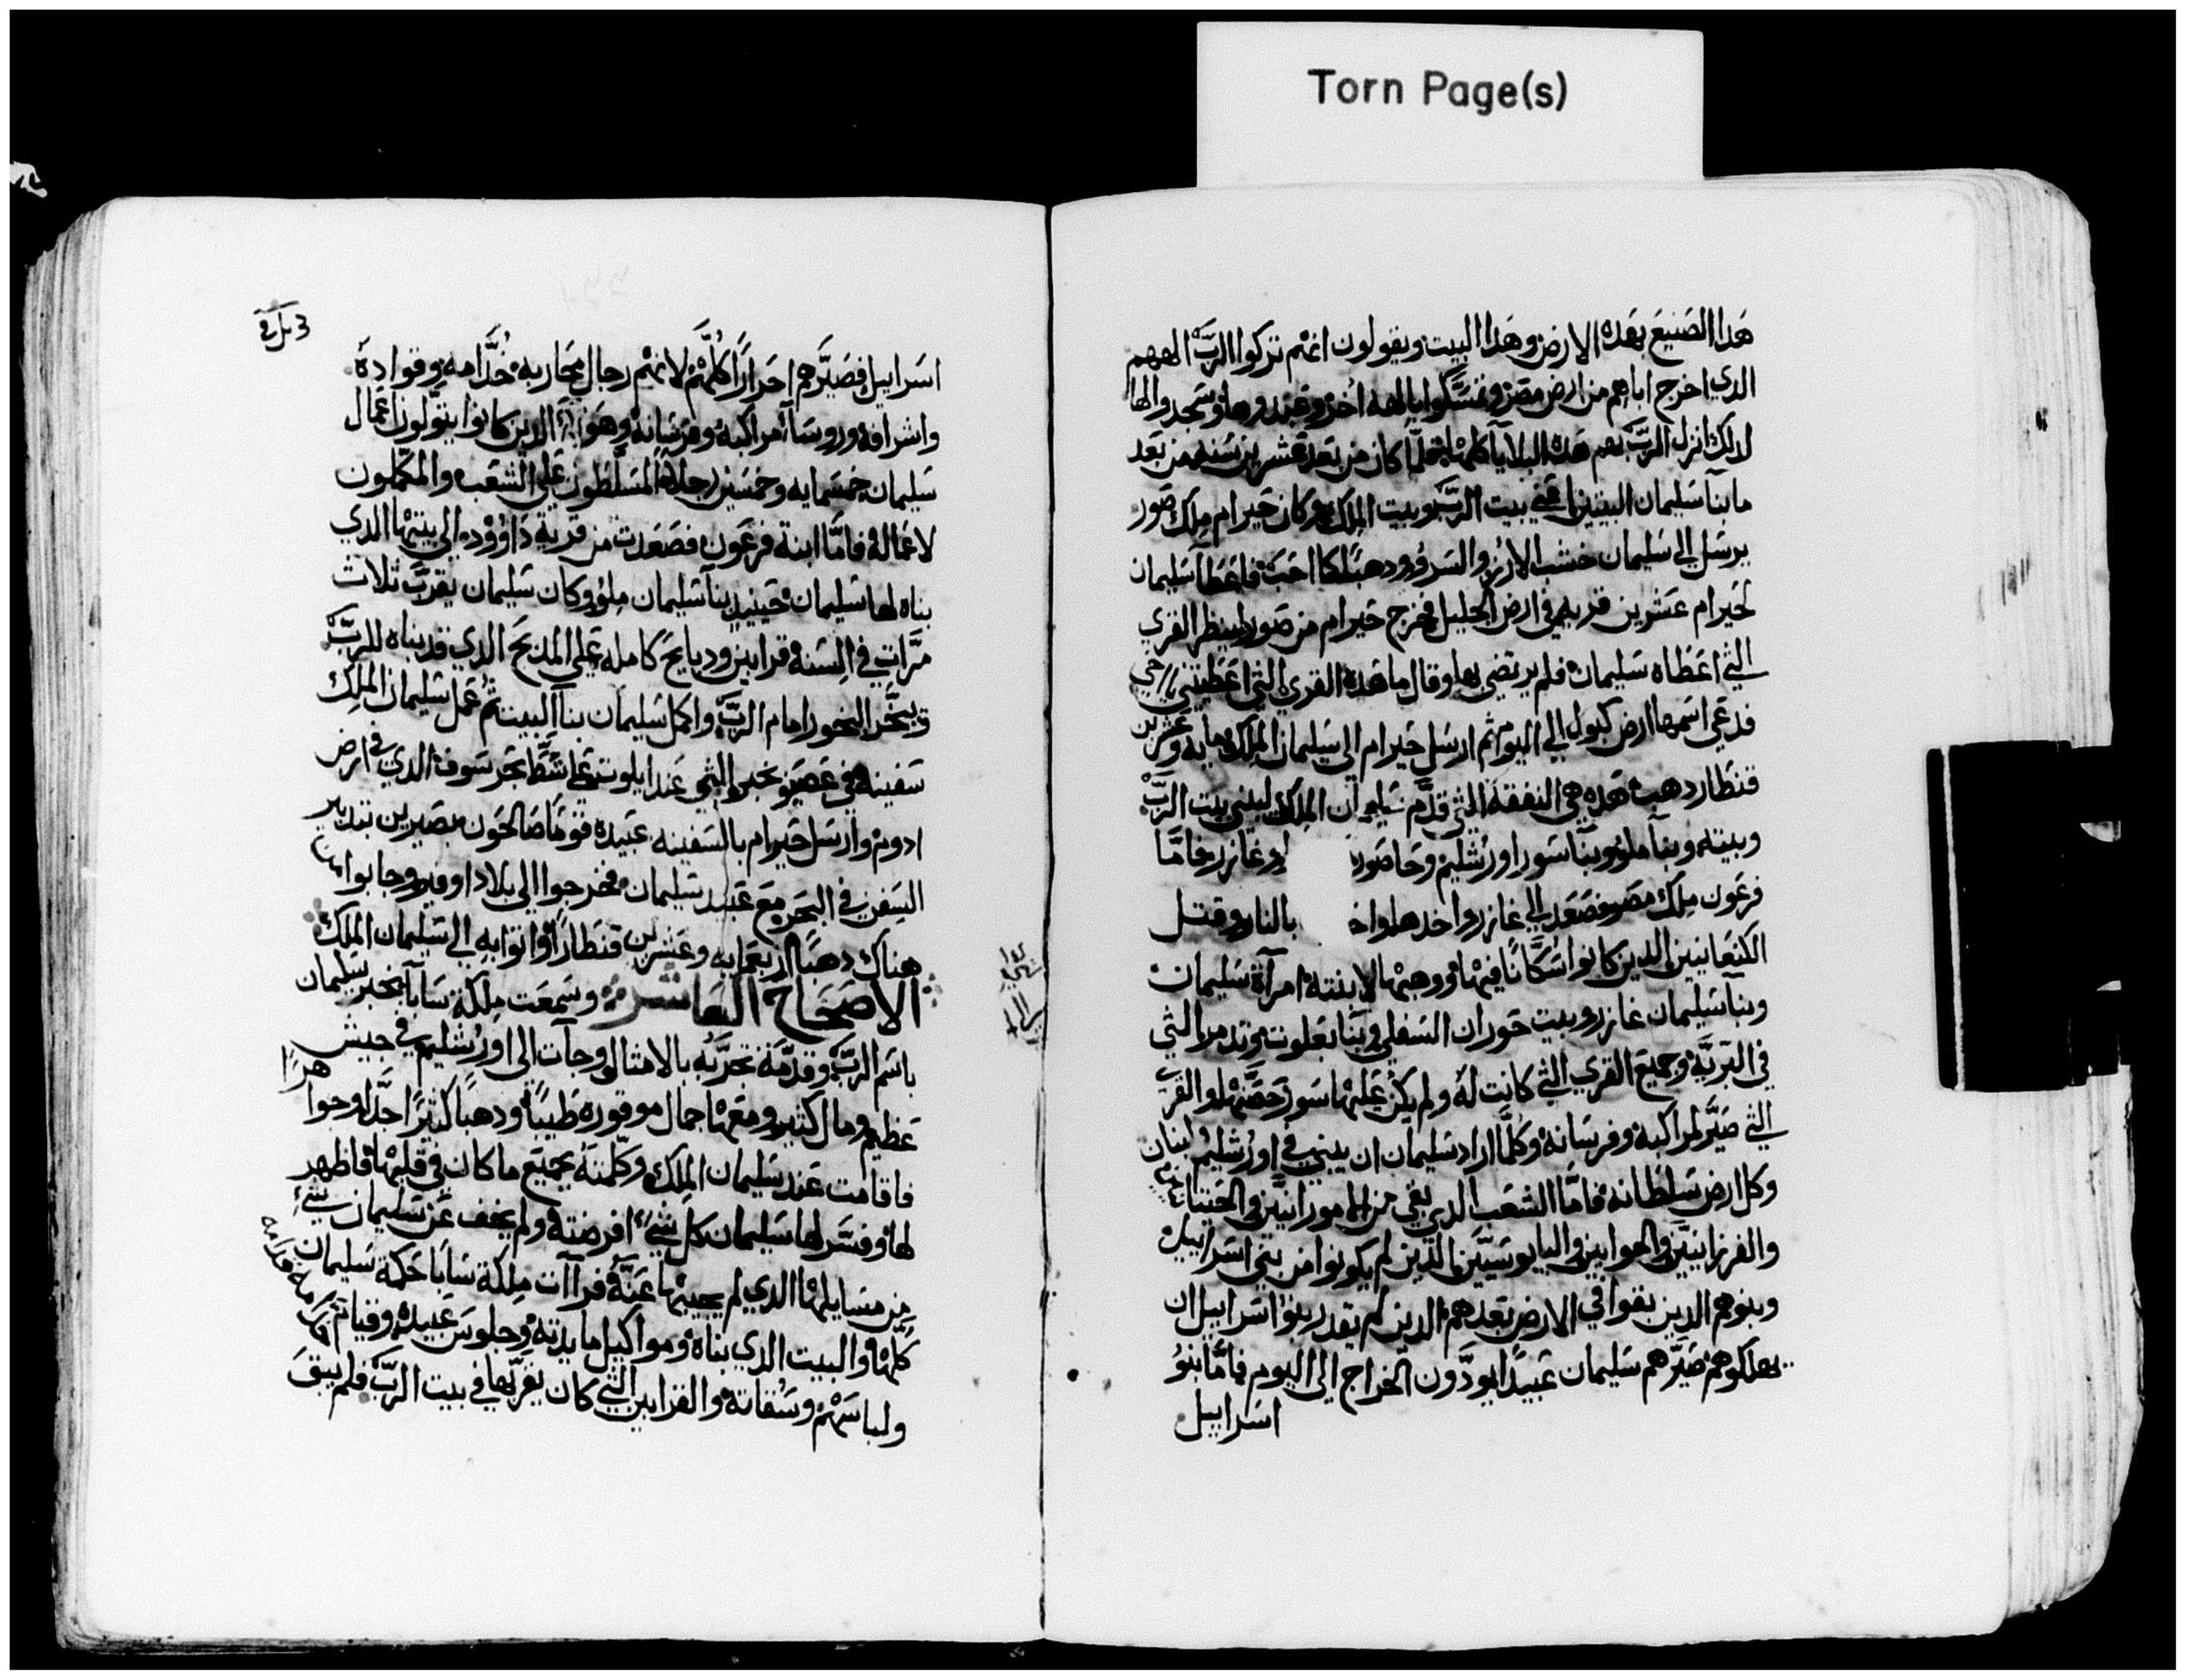 Torn Page(s)
هدا الصنيع بهده الارض وهدا البيت ويقولون انهم تركوا الرب الههم
الدي اخرج اباهم من ارض مصر وتمسكوا بالهه اخر وعبدوها وسجدوا لها
لدلك انزل الرب بهم هده البلايا كلها فلما كان من بعد عشرين سنه من بعد
ما بنآ سليمان البيتين اعني بيت الرب وبيت الملك وكان حيرام ملك صور
يرسل الي سليمان خشب الارز والسرو ودهبا كما احب فاعطا سليمان
لحيرام عشرين قريه في ارض الجليل فخرج حيرام من صور لينظر القري
التي اعطاه سليمان فلم يرتضي بها وقال ما هده القري التي اعطيتني يا اخي
فدعي اسمها ارض كبول الي اليوم ثم ارسل حيرام الي سليمان الملك مايه وعشرين
قنطار دهب هده هي النفقة التي قدم سليمان الملك ليبني بيت الرب
وبيته وبنآ ملو وبنا سور اورشليم وحاصور وغازر فامّا
فرعون ملك مصر فصعد الي غازر واخدها بالنار وقتل
الكنعانيين الدين كانوا سكانا فيها ووهبها لابنته امرآة سليمان
وبنآ سليمان غازر وبيت حوران السفلي وبنا بعلوت وتدمر التي
في البرية وجميع القري التي كانت له ولم يكن عليها سور حصنها والقري
التي صير لمراكبه وفرسانه وكلما اراد سليمان ان يبني في اورشليم ولبنان
وكل ارض سلطانه فاما الشعب الدي بقي من الامورانيين والحيتانيين
والفرزانيين والحوايين واليابوسيين الدين لم يكونوا من بني اسراييل
وبنوهم الدين بقوا في الارض بعدهم الدين لم تقدر بنوا اسراييل ان
يهلكوهم صيرهم سليمان عبيدا يودون الخراج الي اليوم فاما بنو
اسراييل
اسراييل فصيرهم احرارا كلهم لانهم رجال محاربه خدامه وقواده
واشرافه وروسآ مراكبه وفرسانه وهولاء الدين كانوا يتولون اعمال
سليمان خمسمايه وخمسين رجلا المسلطون علي الشعب والمكملون
لاعماله فامّا ابنة فرعون فصعدت من قرية داوود الي بيتها الدي
بناه لها سليمان حينيد بنآ سليمان ملو وكان سليمان يقرب ثلاث
مرات في السنه قرابين ودبايح كامله علي المدبح الدي قد بناه للرب
ويبخر البخور امام الرب واكمل سليمان بنآ البيت ثم عمل سليمان الملك
سفينه في عصيون جبر التي عند ايلوت علي شط بحر سوف الدي في ارض
ادوم وارسل حيرام بالسفينه عبيده قوما صالحون بصيرين بتدبير
السفن في البحر مع عبيد سليمان فخرجوا الي بلاد اوفير وجابوا من
هناك دهبا اربعمايه وعشرين قنطارا واتوا به الي سليمان الملك
الاصحاح العاشر وسمعت ملكة سابا بخبر سليمان
باسم الرب وقدمة تجربه بالامثال وجآت الي اورشليم في جيش
عظيم ومال كتير ومعها جمال موقوره طيبا ودهبا كتيرا جدا وجوا هرا
فاقامت عند سليمان الملك وكلمته بجميع ما كان في قلبها فاظهر
لها وفسر لها سليمان كل شيء افرضته ولم يخف عن سليمان شيء
من مسايلها الدي لم يجيبها عنه فرآت ملكة سابا حكمة سليمان
كلها والبيت الدي بناه ومواكيل مايدته وجلوس عبيده وقيام
ولباسهم وسقاته والقرابين التي كان يقربها في بيت الرب فلم يبق